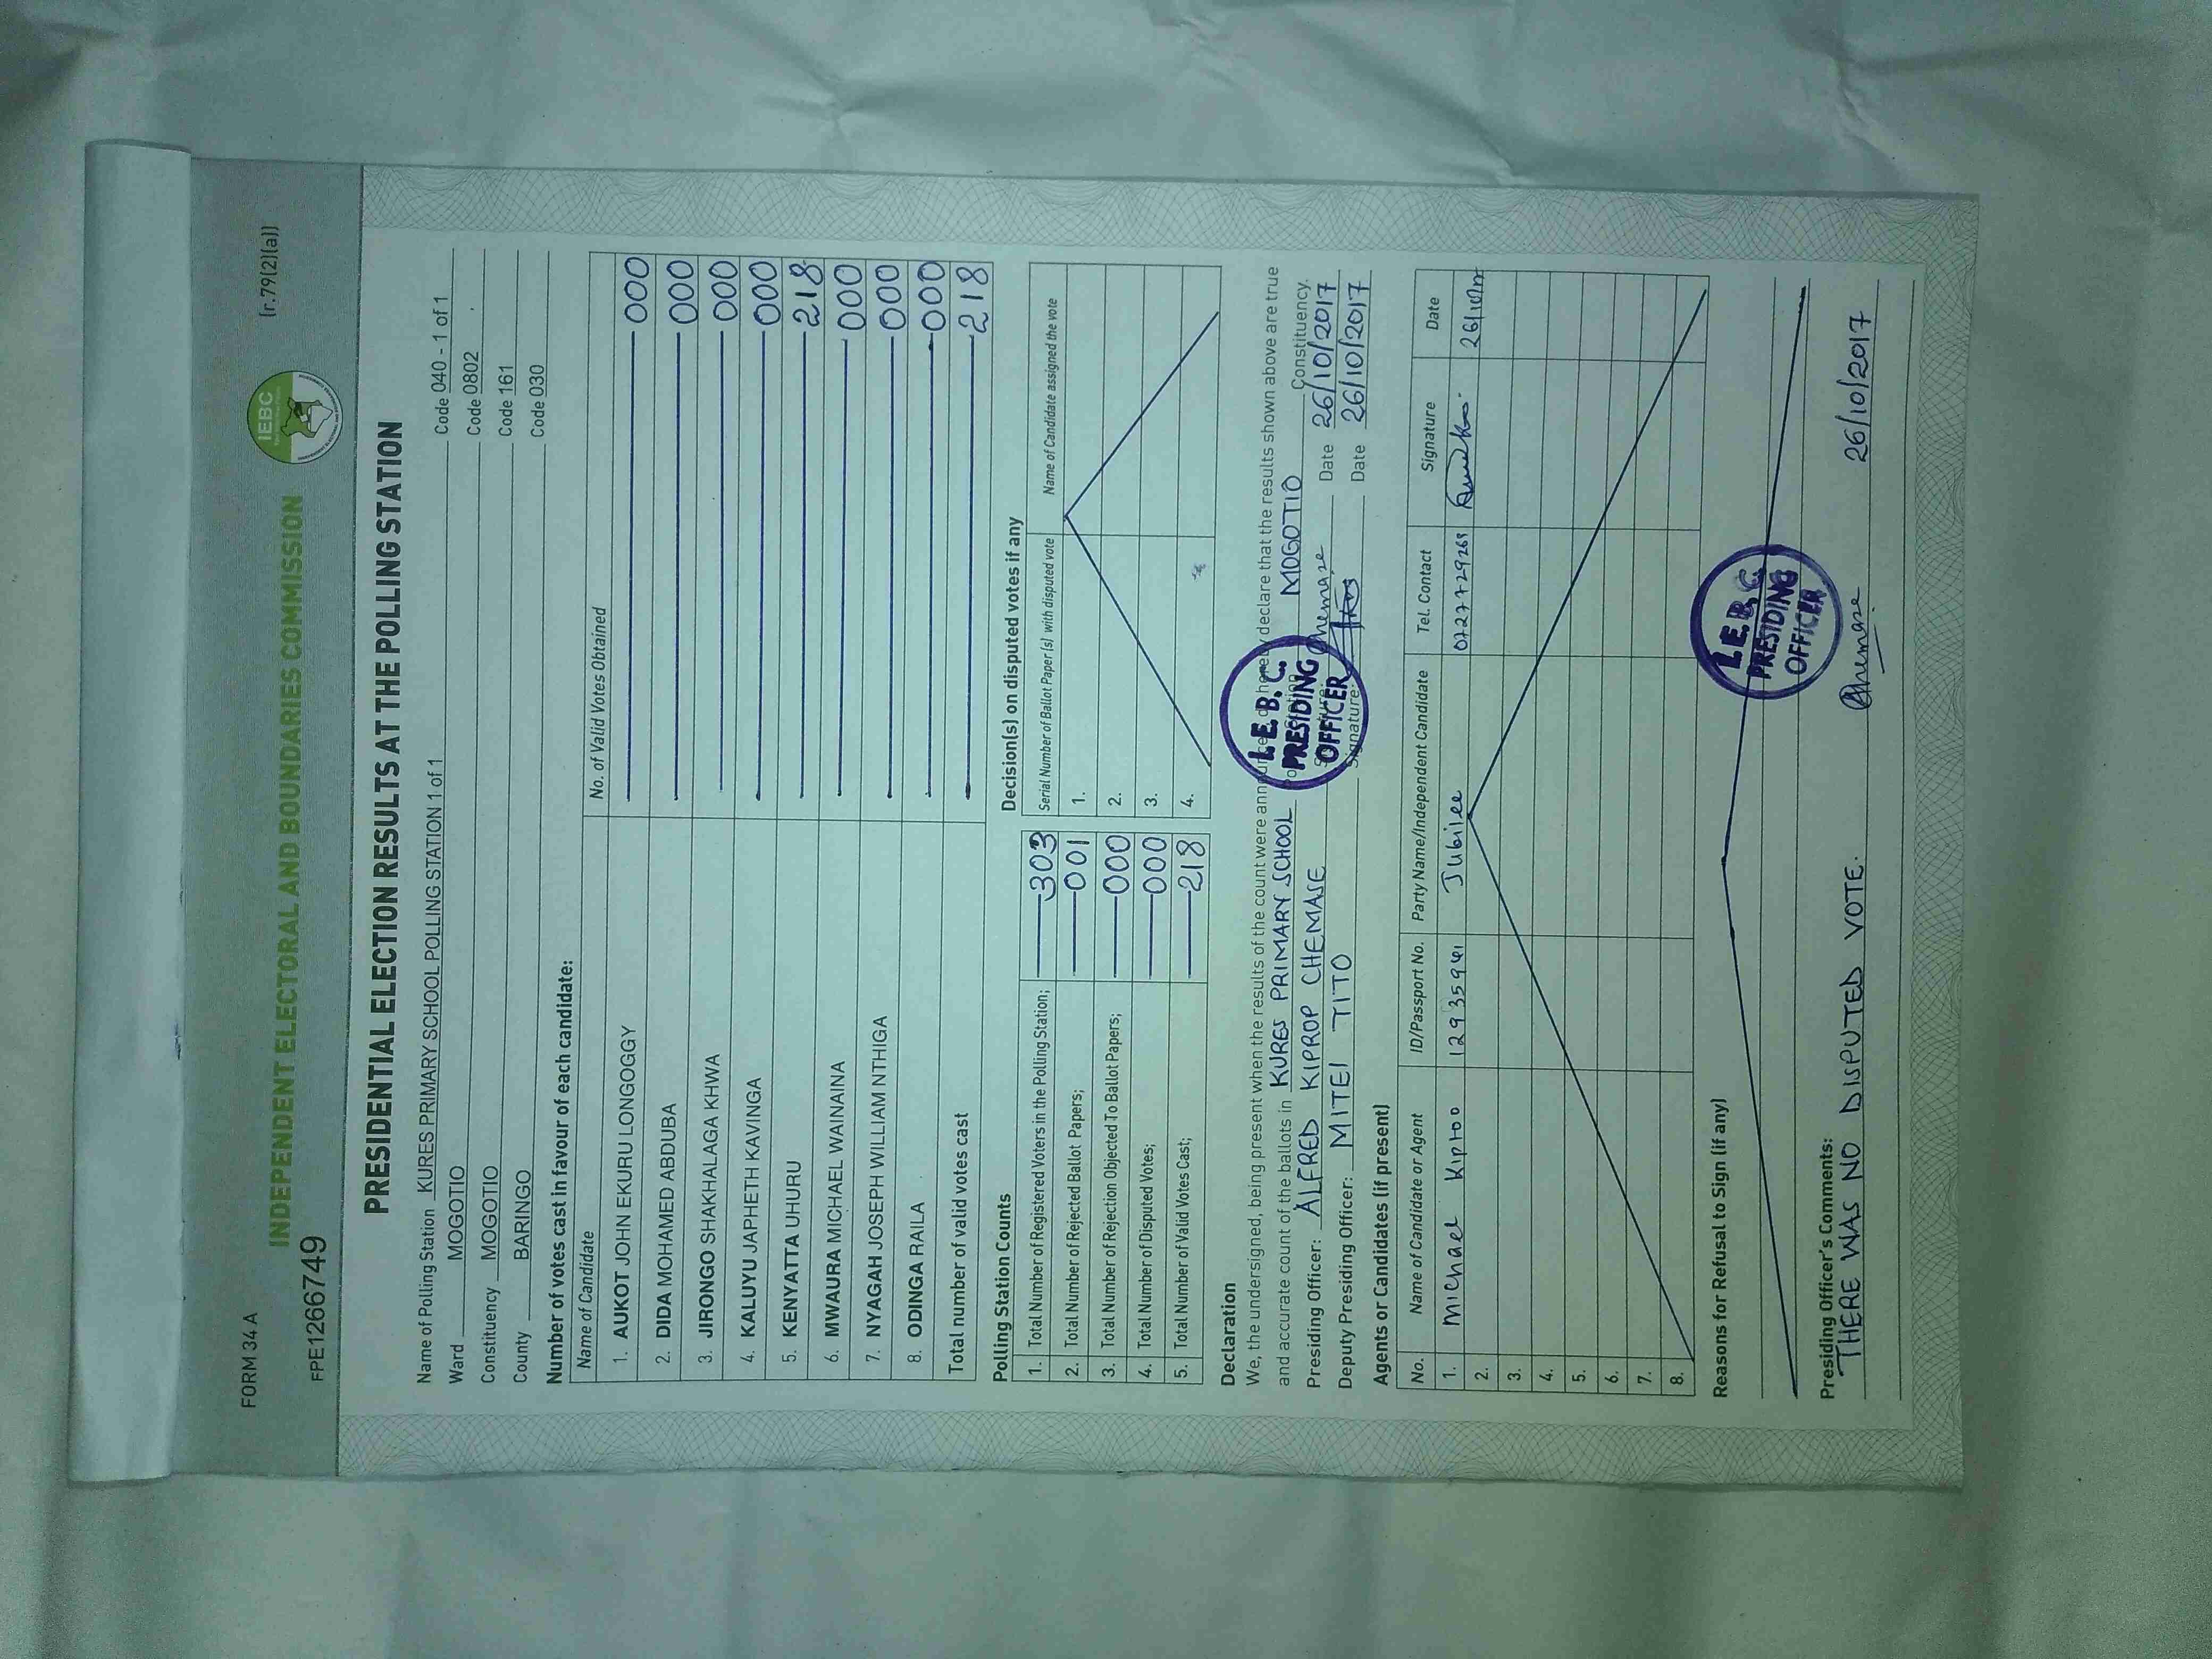 FORM 34 A
(r.79(2)(a))
INDEPENDENT ELECTORAL AND BOUNDARIES COMMISSION
IEBC
FPE1266749
PRESIDENTIAL ELECTION RESULTS AT THE POLLING STATION
Name of Polling Station KURES PRIMARY SCHOOL POLLING STATION 1 of 1 Code 040 - 1 of 1
Ward MOGOTIO Code 0802
Constituency MOGOTIO Code 161
County BARINGO Code 030
Number of votes cast in favour of each candidate:
Name of Candidate No. of Valid Votes Obtained
1. AUKOT JOHN EKURU LONGOGGY 000
2. DIDA MOHAMED ABDUBA 000
3. JIRONGO SHAKHALAGA KHWA 000
4. KALUYU JAPHETH KAVINGA 000
5. KENYATTA UHURU 218
6. MWAURA MICHAEL WAINAINA 000
7. NYAGAH JOSEPH WILLIAM NTHIGA 000
8. ODINGA RAILA 000
Total number of valid votes cast 218
Polling Station Counts
1. Total Number of Registered Voters in the Polling Station; 303
2. Total Number of Rejected Ballot Papers; 001
3. Total Number of Rejection Objected To Ballot Papers; 000
4. Total Number of Disputed Votes; 000
5. Total Number of Valid Votes Cast; 218
Decision(s) on disputed votes if any
Serial Number of Ballot Paper(s) with disputed vote Name of Candidate assigned the vote
1.
2.
3.
4.
Declaration
We, the undersigned, being present when the results of the count were announced, do hereby declare that the results shown above are true
and accurate count of the ballots in KURES PRIMARY SCHOOL MOGOTIO Constituency.
Presiding Officer: ALFRED KIPROP CHEMASE Chemase Date 26/10/2017
Deputy Presiding Officer: MITEI TITO Signature: Date 26/10/2017
I.E.B.C.
PRESIDING
OFFICER
Agents or Candidates (if present)
No. Name of Candidate or Agent ID/Passport No. Party Name/Independent Candidate Tel. Contact Signature Date
1. Michael Kiptoo 12935941 Jubilee 0727729269 26/10/17
2.
3.
4.
5.
6.
7.
8.
Reasons for Refusal to Sign (if any)
I.E.B.C.
PRESIDING
OFFICER
Presiding Officer's Comments:
THERE WAS NO DISPUTED VOTE. Chemase 26/10/2017